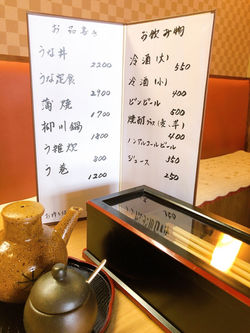 お品書き
うな丼 2200
うな定食 2700
蒲焼 1700
柳川鍋 1800
う雑炊 800
う巻 1200
お飲み物
冷酒(大) 550
冷酒(小) 400
ビンビール 600
焼酎グラス(麦、芋) 400
ノンアルコールビール 350
ジュース 250